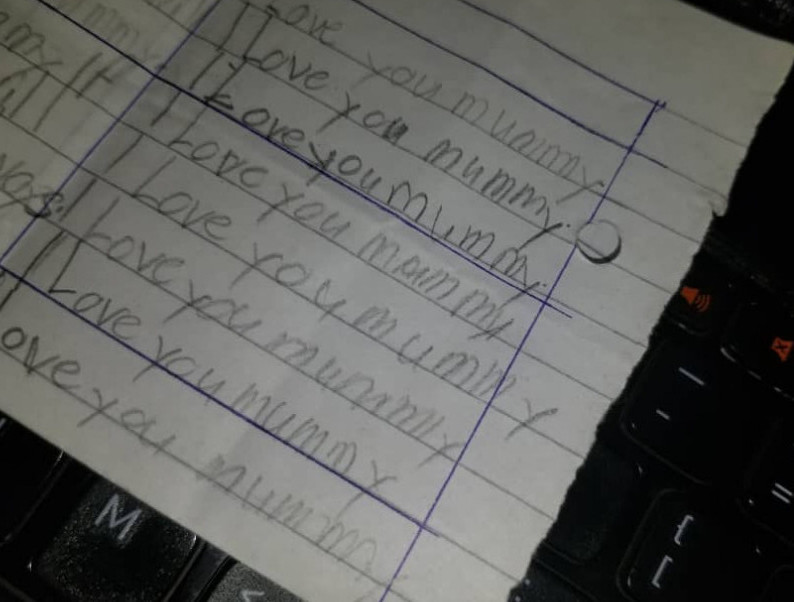 Love you mummy
I Love you mummy.
I Love you mummy.
I Love you mummy
I Love you mummy
I Love you mummy
I Love you mummy
ove you mummy
M